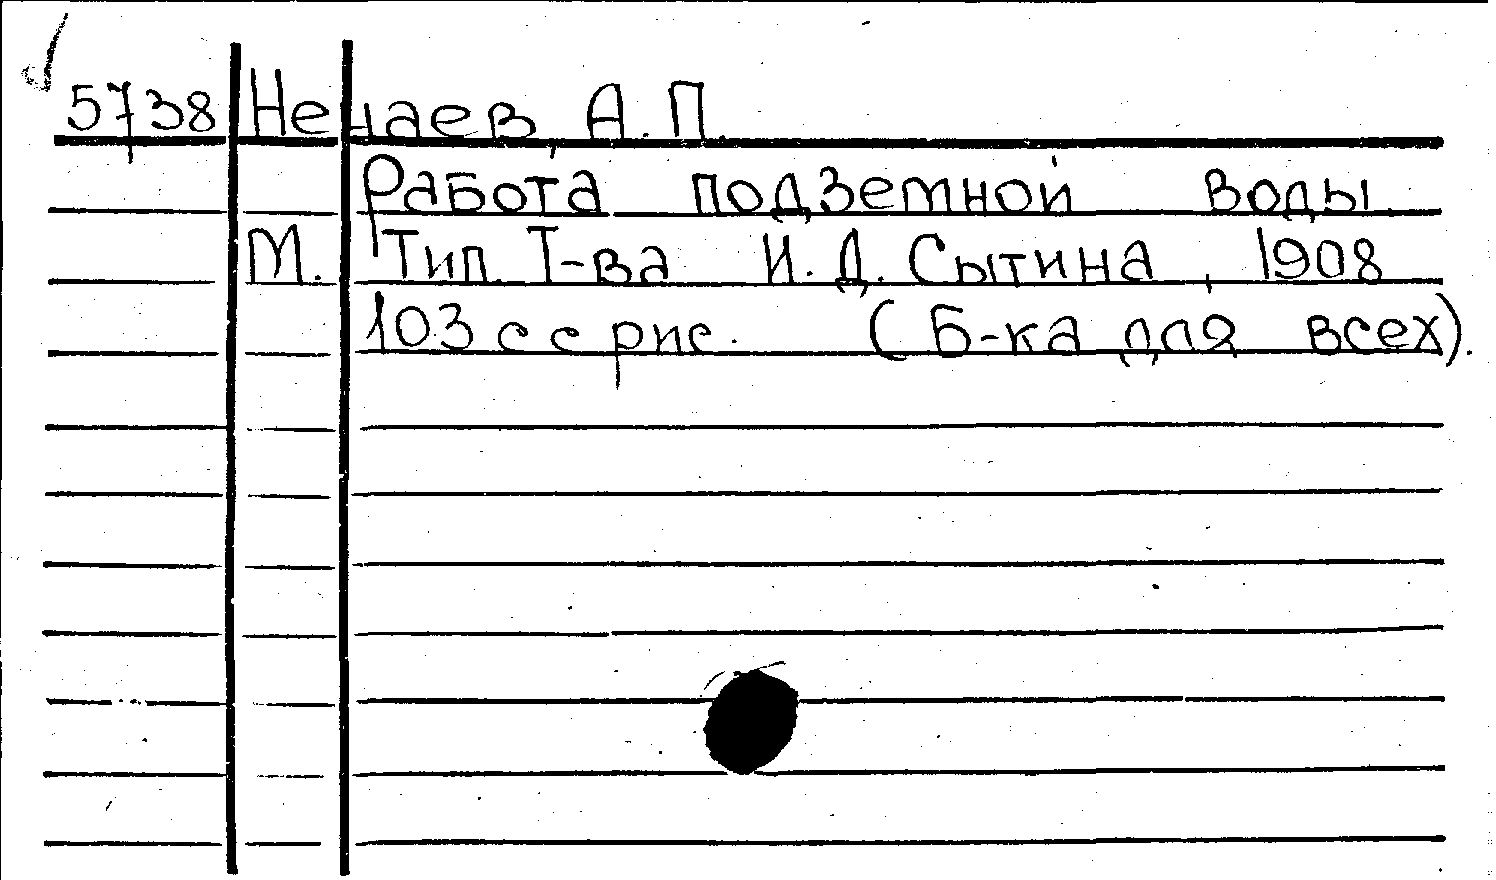 5738 Нечаев, А. П.
Работа подземной воды.
М. Тип. Т-ва И. Д. Сытина, 1908
103 с с рис. (Б-ка для всех).